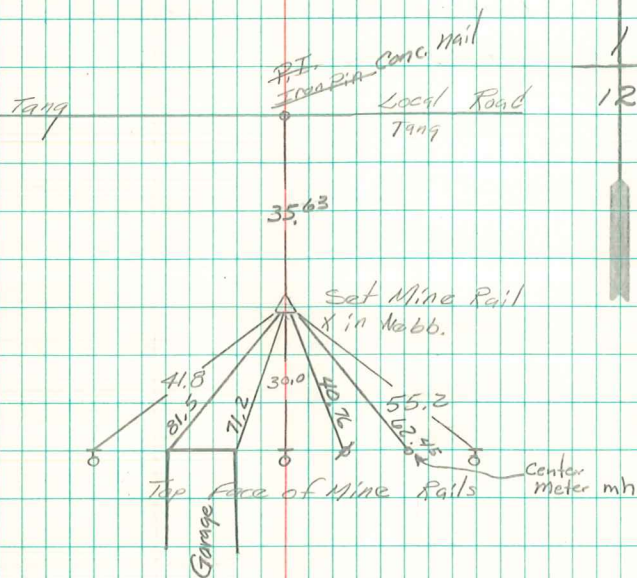 P.I.
Iron Pin Conc. nail
Tang
Local Road
Tang
1
12
35.63
Set Mine Rail
X in Webb.
41.8
81.5
71.2
30.0
40.76
62.45
55.2
Center
Meter mh
Top Face of Mine Rails
Garage